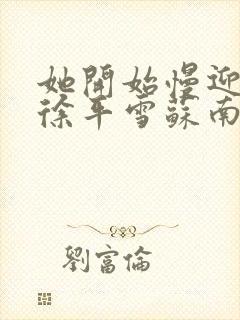 她開始慢迎
徐平雪蘇南
劉富倫